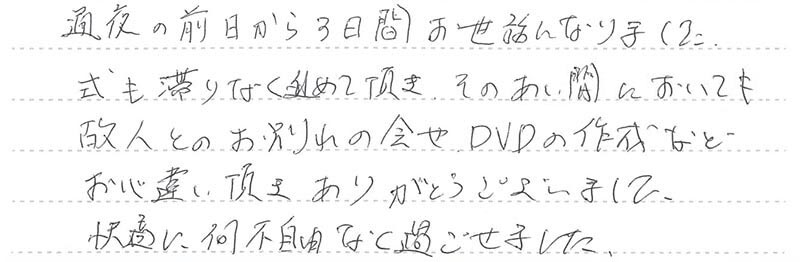 通夜の前日から3日間お世話になりました。
式も滞りなく進めて頂き、そのあい間においても
故人とのお別れの会や、DVDの作成など
お心遣い頂きありがとうございました。
快適に何不自由なく過ごせました。